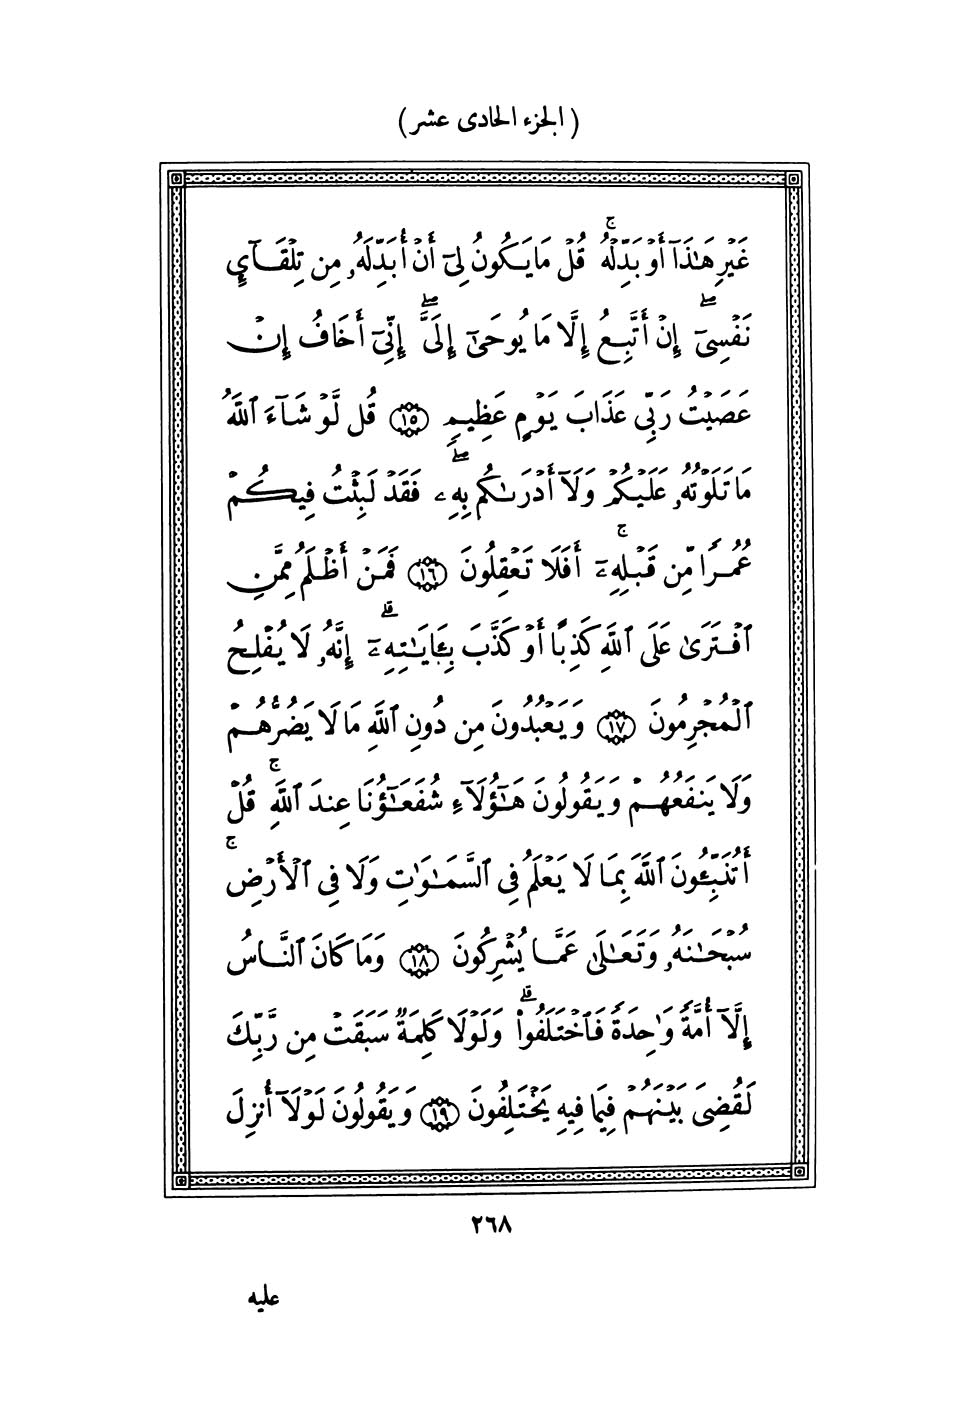 ( الجزء الحادى عشر )
غَيْرِ هَـٰذَآ أَوْ بَدِّلْهُ ۚ قُلْ مَا يَكُونُ لِىٓ أَنْ أُبَدِّلَهُۥ مِن تِلْقَآىِٕ
نَفْسِىٓ ۖ إِنْ أَتَّبِعُ إِلَّا مَا يُوحَىٰٓ إِلَىَّ ۖ إِنِّىٓ أَخَافُ إِنْ
عَصَيْتُ رَبِّى عَذَابَ يَوْمٍ عَظِيمٍ ١٥ قُل لَّوْ شَآءَ ٱللَّهُ
مَا تَلَوْتُهُۥ عَلَيْكُمْ وَلَآ أَدْرَىٰكُم بِهِۦ ۖ فَقَدْ لَبِثْتُ فِيكُمْ
عُمُرًا مِّن قَبْلِهِۦٓ ۚ أَفَلَا تَعْقِلُونَ ١٦ فَمَنْ أَظْلَمُ مِمَّنِ
ٱفْتَرَىٰ عَلَى ٱللَّهِ كَذِبًا أَوْ كَذَّبَ بِـَٔايَـٰتِهِۦٓ ۗ إِنَّهُۥ لَا يُفْلِحُ
ٱلْمُجْرِمُونَ ١٧ وَيَعْبُدُونَ مِن دُونِ ٱللَّهِ مَا لَا يَضُرُّهُمْ
وَلَا يَنفَعُهُمْ وَيَقُولُونَ هَـٰٓؤُلَآءِ شُفَعَـٰٓؤُنَا عِندَ ٱللَّهِ ۚ قُلْ
أَتُنَبِّـُٔونَ ٱللَّهَ بِمَا لَا يَعْلَمُ فِى ٱلسَّمَـٰوَٰتِ وَلَا فِى ٱلْأَرْضِ ۚ
سُبْحَـٰنَهُۥ وَتَعَـٰلَىٰ عَمَّا يُشْرِكُونَ ١٨ وَمَا كَانَ ٱلنَّاسُ
إِلَّآ أُمَّةً وَٰحِدَةً فَٱخْتَلَفُوا۟ ۗ وَلَوْلَا كَلِمَةٌ سَبَقَتْ مِن رَّبِّكَ
لَقُضِىَ بَيْنَهُمْ فِيمَا فِيهِ يَخْتَلِفُونَ ١٩ وَيَقُولُونَ لَوْلَآ أُنزِلَ
٢٦٨
عليه